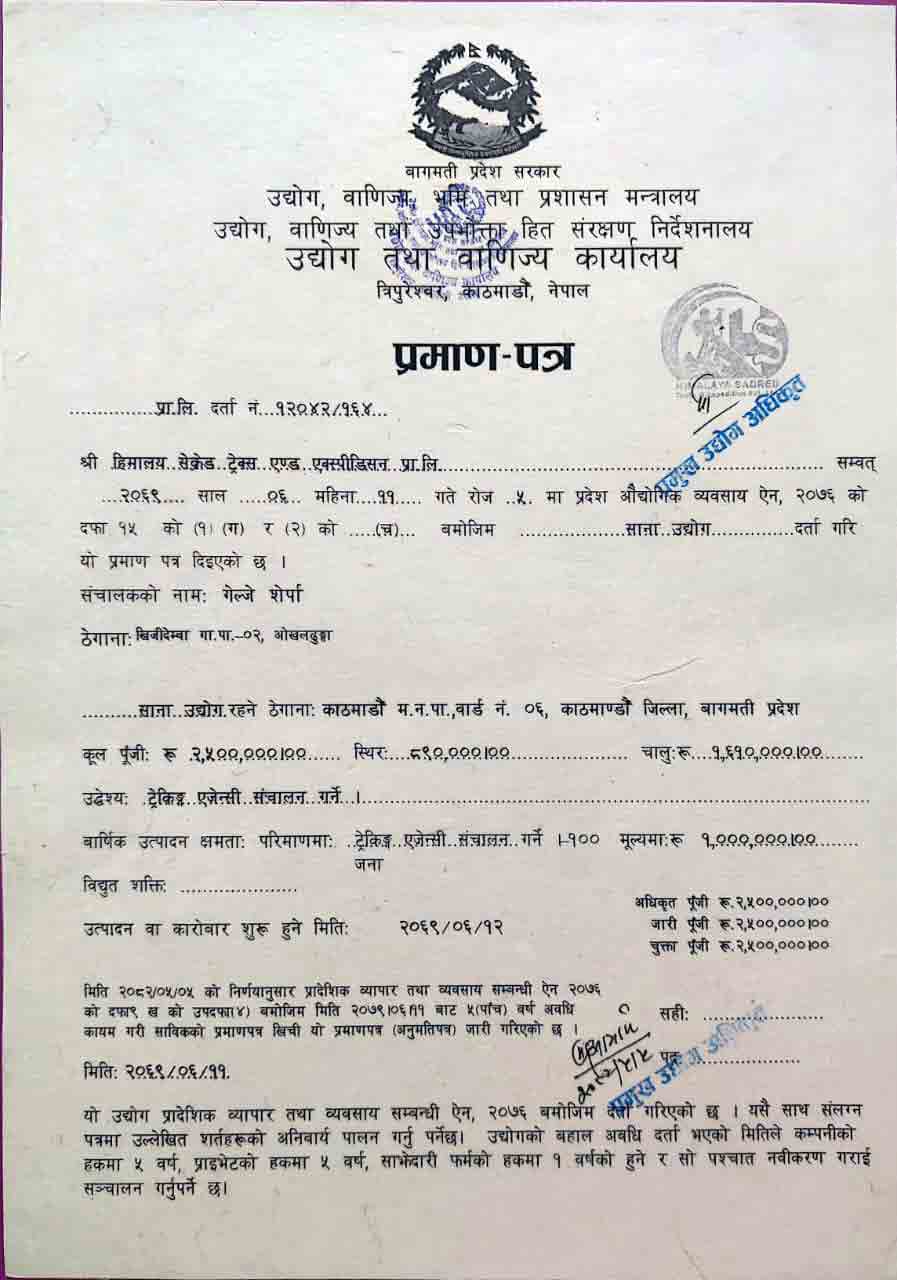 बागमती प्रदेश सरकार
उद्योग, वाणिज्य, भूमि तथा प्रशासन मन्त्रालय
उद्योग, वाणिज्य तथा उपभोक्ता हित संरक्षण निर्देशनालय
उद्योग तथा वाणिज्य कार्यालय
त्रिपुरेश्वर, काठमाडौं, नेपाल
प्रमाण-पत्र
HIMALAYA SACRED
प्रमुख उद्योग अधिकृत
..............प्रा.लि. दर्ता नं...१२०४२/१६४...
श्री हिमालय सेक्रेड ट्रेक्स एण्ड एक्स्पीडिसन प्रा.लि. सम्वत्
...२०६९.... साल .....०६.. महिना..११.... गते रोज ..५. मा प्रदेश औद्योगिक व्यवसाय ऐन, २०७६ को
दफा १५ को (१) (ग) र (२) को .....(च).. बमोजिम ..................साना उद्योग..............दर्ता गरि
यो प्रमाण पत्र दिइएको छ ।
संचालकको नाम: गेल्जे शेर्पा
ठेगाना: खिजीदेम्बा गा.पा.-०२, ओखलढुङ्गा
..........साना उद्योग रहने ठेगाना: काठमाडौं म.न.पा.,वार्ड नं. ०६, काठमाण्डौं जिल्ला, बागमती प्रदेश
कूल पूँजी: रू .२,५००,०००|००...... स्थिर:...८९०,०००|००.................. चालु:रू....१,६१०,०००|००.....
उद्धेश्य: ..ट्रेकिङ्ग एजेन्सी संचालन गर्ने ।
बार्षिक उत्पादन क्षमता: परिमाणमा: ..ट्रेकिङ्ग एजेन्सी संचालन गर्ने ।-१०० मूल्यमा:रू १,०००,०००|००........
जना
विद्युत शक्ति: ......................
अधिकृत पूंजी रू.२,५००,०००|००
जारी पूंजी रू.२,५००,०००|००
चुक्ता पूंजी रू.२,५००,०००|००
उत्पादन वा कारोबार शुरू हुने मिति: २०६९/०६/१२
मिति २०८२/०५/०५ को निर्णयानुसार प्रादेशिक व्यापार तथा व्यवसाय सम्बन्धी ऐन २०७६
को दफा९ ख को उपदफा(४) बमोजिम मिति २०७९।०६।११ बाट ५(पाँच) वर्ष अवधि
कायम गरी साविकको प्रमाणपत्र खिची यो प्रमाणपत्र (अनुमतिपत्र) जारी गरिएको छ ।
सही: .....................
पद: .....................
प्रमुख उद्योग अधिकृत
मिति: २०६९/०६/११.
यो उद्योग प्रादेशिक व्यापार तथा व्यवसाय सम्बन्धी ऐन, २०७६ बमोजिम दर्ता गरिएको छ । यसै साथ संलग्न
पत्रमा उल्लेखित शर्तहरूको अनिवार्य पालन गर्नु पर्नेछ। उद्योगको बहाल अवधि दर्ता भएको मितिले कम्पनीको
हकमा ५ वर्ष, प्राइभेटको हकमा ५ वर्ष, साझेदारी फर्मको हकमा १ वर्षको हुने र सो पश्चात नवीकरण गराई
सञ्चालन गर्नुपर्ने छ।